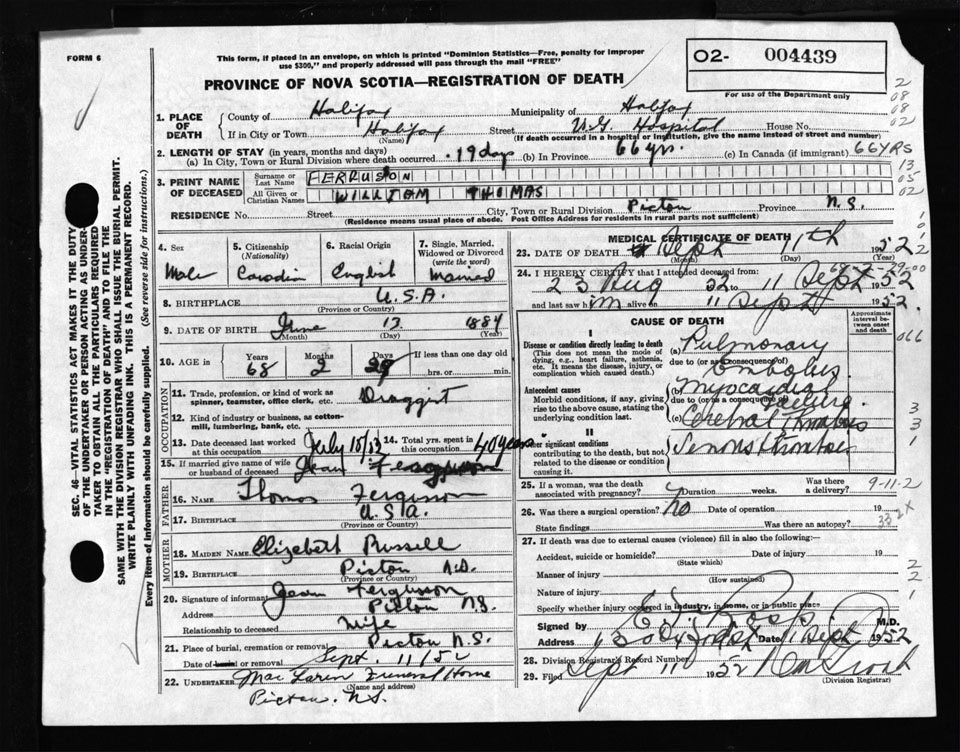 FORM 6
This form, if placed in an envelope, on which is printed "Dominion Statistics—Free, penalty for improper
use $300," and properly addressed will pass through the mail "FREE"
02- 004439
For use of the Department only
PROVINCE OF NOVA SCOTIA—REGISTRATION OF DEATH
1. PLACE OF DEATH
County of Halifax Municipality of Halifax
If in City or Town Halifax Street V.G. Hospital House No.
(Name) (If death occurred in a hospital or institution, give the name instead of street and number)
2. LENGTH OF STAY (in years, months and days)
(a) In City, Town or Rural Division where death occurred 19 days (b) In Province 66 yrs. (c) In Canada (if immigrant) 66 YRS
3. PRINT NAME OF DECEASED
Surname or Last Name FERGUSON
All Given or Christian Names WILLIAM THOMAS
RESIDENCE No. Street City, Town or Rural Division Pictou Province N.S.
(Residence means usual place of abode. Post Office Address for residents in rural parts not sufficient)
4. Sex Male
5. Citizenship (Nationality)
6. Racial Origin English
7. Single, Married, Widowed or Divorced (write the word) Married
8. BIRTHPLACE U.S.A.
(Province or Country)
9. DATE OF BIRTH June 13 1884
(Month) (Day) (Year)
10. AGE in Years 68 Months 2 Days 29 If less than one day old
hrs. or min.
OCCUPATION
11. Trade, profession, or kind of work as spinner, teamster, office clerk, etc. Druggist
12. Kind of industry or business, as cotton-mill, lumbering, bank, etc.
13. Date deceased last worked at this occupation July 15/52 14. Total yrs. spent in this occupation 40 years
15. If married give name of wife or husband of deceased Jean Ferguson
FATHER
16. NAME Thomas Ferguson
17. BIRTHPLACE U.S.A.
(Province or Country)
MOTHER
18. MAIDEN NAME Elizabeth Russell
19. BIRTHPLACE Pictou N.S.
(Province or Country)
20. Signature of informant Jean Ferguson
Address Pictou N.S.
Relationship to deceased Wife
21. Place of burial, cremation or removal Pictou N.S.
Date of burial or removal Sept. 11/52
22. UNDERTAKER MacLaren Funeral Home
(Name and address)
Pictou, N.S.
MEDICAL CERTIFICATE OF DEATH
23. DATE OF DEATH Sept 11th 1952
(Month) (Day)
24. I HEREBY CERTIFY that I attended deceased from:
23 Aug 52 to 11 Sept 1952
and last saw him alive on 11 Sept 1952.
CAUSE OF DEATH
Approximate interval between onset and death
I
Disease or condition directly leading to death
(This does not mean the mode of dying, e.g., heart failure, asthenia, etc. It means the disease, injury, or complication which caused death.)
(a) Pulmonary Embolus
due to (or as a consequence of)
Antecedent causes
Morbid conditions, if any, giving rise to the above cause, stating the underlying condition last.
(b) Myocardial Failure
due to (or as a consequence of)
(c) Cerebral Thrombosis
II
Other significant conditions
contributing to the death, but not related to the disease or condition causing it.
25. If a woman, was the death associated with pregnancy? Duration weeks. Was there a delivery?
9-11-2
26. Was there a surgical operation? No Date of operation 19
State findings Was there an autopsy?
27. If death was due to external causes (violence) fill in also the following:
Accident, suicide or homicide? Date of injury 19
(State which)
Manner of injury
(How sustained)
Nature of injury
Specify whether injury occurred in industry, in home, or in public place
Signed by M.D.
Address Date 11 Sept 1952
28. Division Registrar's Record Number
29. Filed Sept 11 1952
(Division Registrar)
SEC. 46—VITAL STATISTICS ACT MAKES IT THE DUTY
OF THE UNDERTAKER OR PERSON ACTING AS UNDER-
TAKER TO OBTAIN ALL THE PARTICULARS REQUIRED
IN THE "REGISTRATION OF DEATH" AND TO FILE THE
SAME WITH THE DIVISION REGISTRAR WHO SHALL ISSUE THE BURIAL PERMIT.
WRITE PLAINLY WITH UNFADING INK. THIS IS A PERMANENT RECORD.
Every item of information should be carefully supplied. (See reverse side for instructions.)
2
08
08
02
13
05
02
066
3
3
1
2
2
1